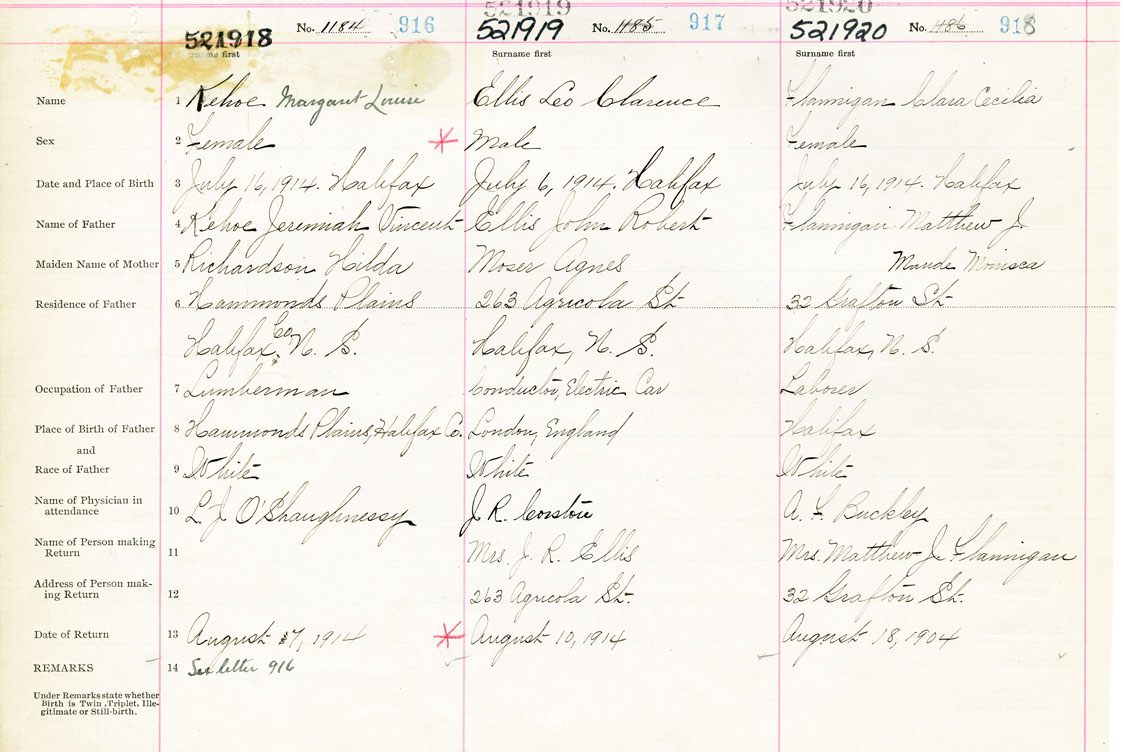 521919 521920
521918 No. 1184 916 521919 No. 1185 917 521920 No. 1186 918
Surname first Surname first Surname first
Name 1 Kehoe Margaret Louise Ellis Leo Clarence Flannigan Clara Cecilia
Sex 2 Female Male Female
Date and Place of Birth 3 July 16, 1914. Halifax July 6, 1914. Halifax July 16, 1914. Halifax
Name of Father 4 Kehoe Jeremiah Vincent Ellis John Robert Flannigan Matthew J.
Maiden Name of Mother 5 Richardson Hilda Moser Agnes Maude
Residence of Father 6 Hammonds Plains 263 Agricola St. 32 Grafton St.
Halifax Co. N. S. Halifax, N. S. Halifax, N. S.
Occupation of Father 7 Lumberman Conductor, Electric Car Laborer
Place of Birth of Father 8 Hammonds Plains, Halifax Co. London, England Halifax
and
Race of Father 9 White White White
Name of Physician in
attendance 10 L. J. O'Shaughnessy J. R. Corston A. F. Buckley
Name of Person making
Return 11 Mrs. J. R. Ellis Mrs. Matthew J. Flannigan
Address of Person mak-
ing Return 12 263 Agricola St. 32 Grafton St.
Date of Return 13 August 17, 1914 August 10, 1914 August 18, 1904
REMARKS 14 See letter 916
Under Remarks state whether
Birth is Twin, Triplet, Ille-
gitimate or Still-birth.